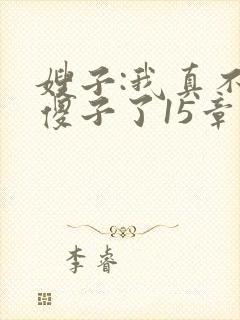 嫂子:我真不
傻子了15章
李睿